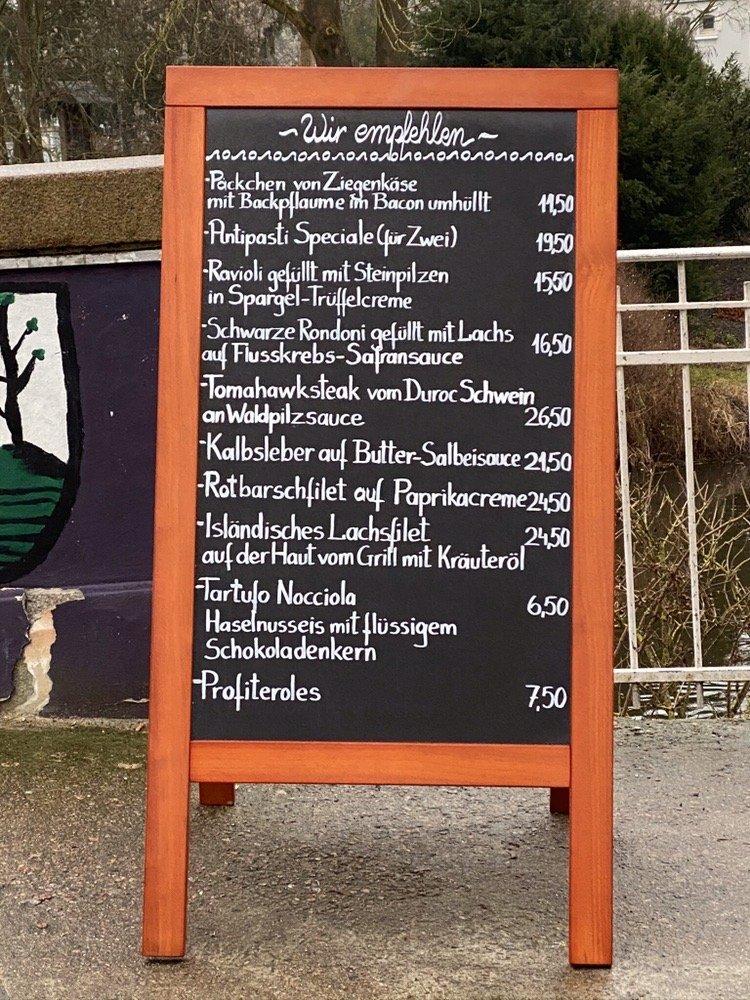 ~Wir empfehlen~
-Päckchen von Ziegenkäse
mit Backpflaume im Bacon umhüllt 11,50
-Antipasti Speciale (für Zwei) 19,50
-Ravioli gefüllt mit Steinpilzen 15,50
in Spargel-Trüffelcreme
-Schwarze Rondoni gefüllt mit Lachs
auf Flusskrebs-Safransauce 16,50
-Tomahawksteak vom Duroc Schwein
an Waldpilzsauce 26,50
-Kalbsleber auf Butter-Salbeisauce 21,50
-Rotbarschfilet auf Paprikacreme 24,50
-Isländisches Lachsfilet 24,50
auf der Haut vom Grill mit Kräuteröl
-Tartufo Nocciola 6,50
Haselnusseis mit flüssigem
Schokoladenkern
-Profiteroles 7,50